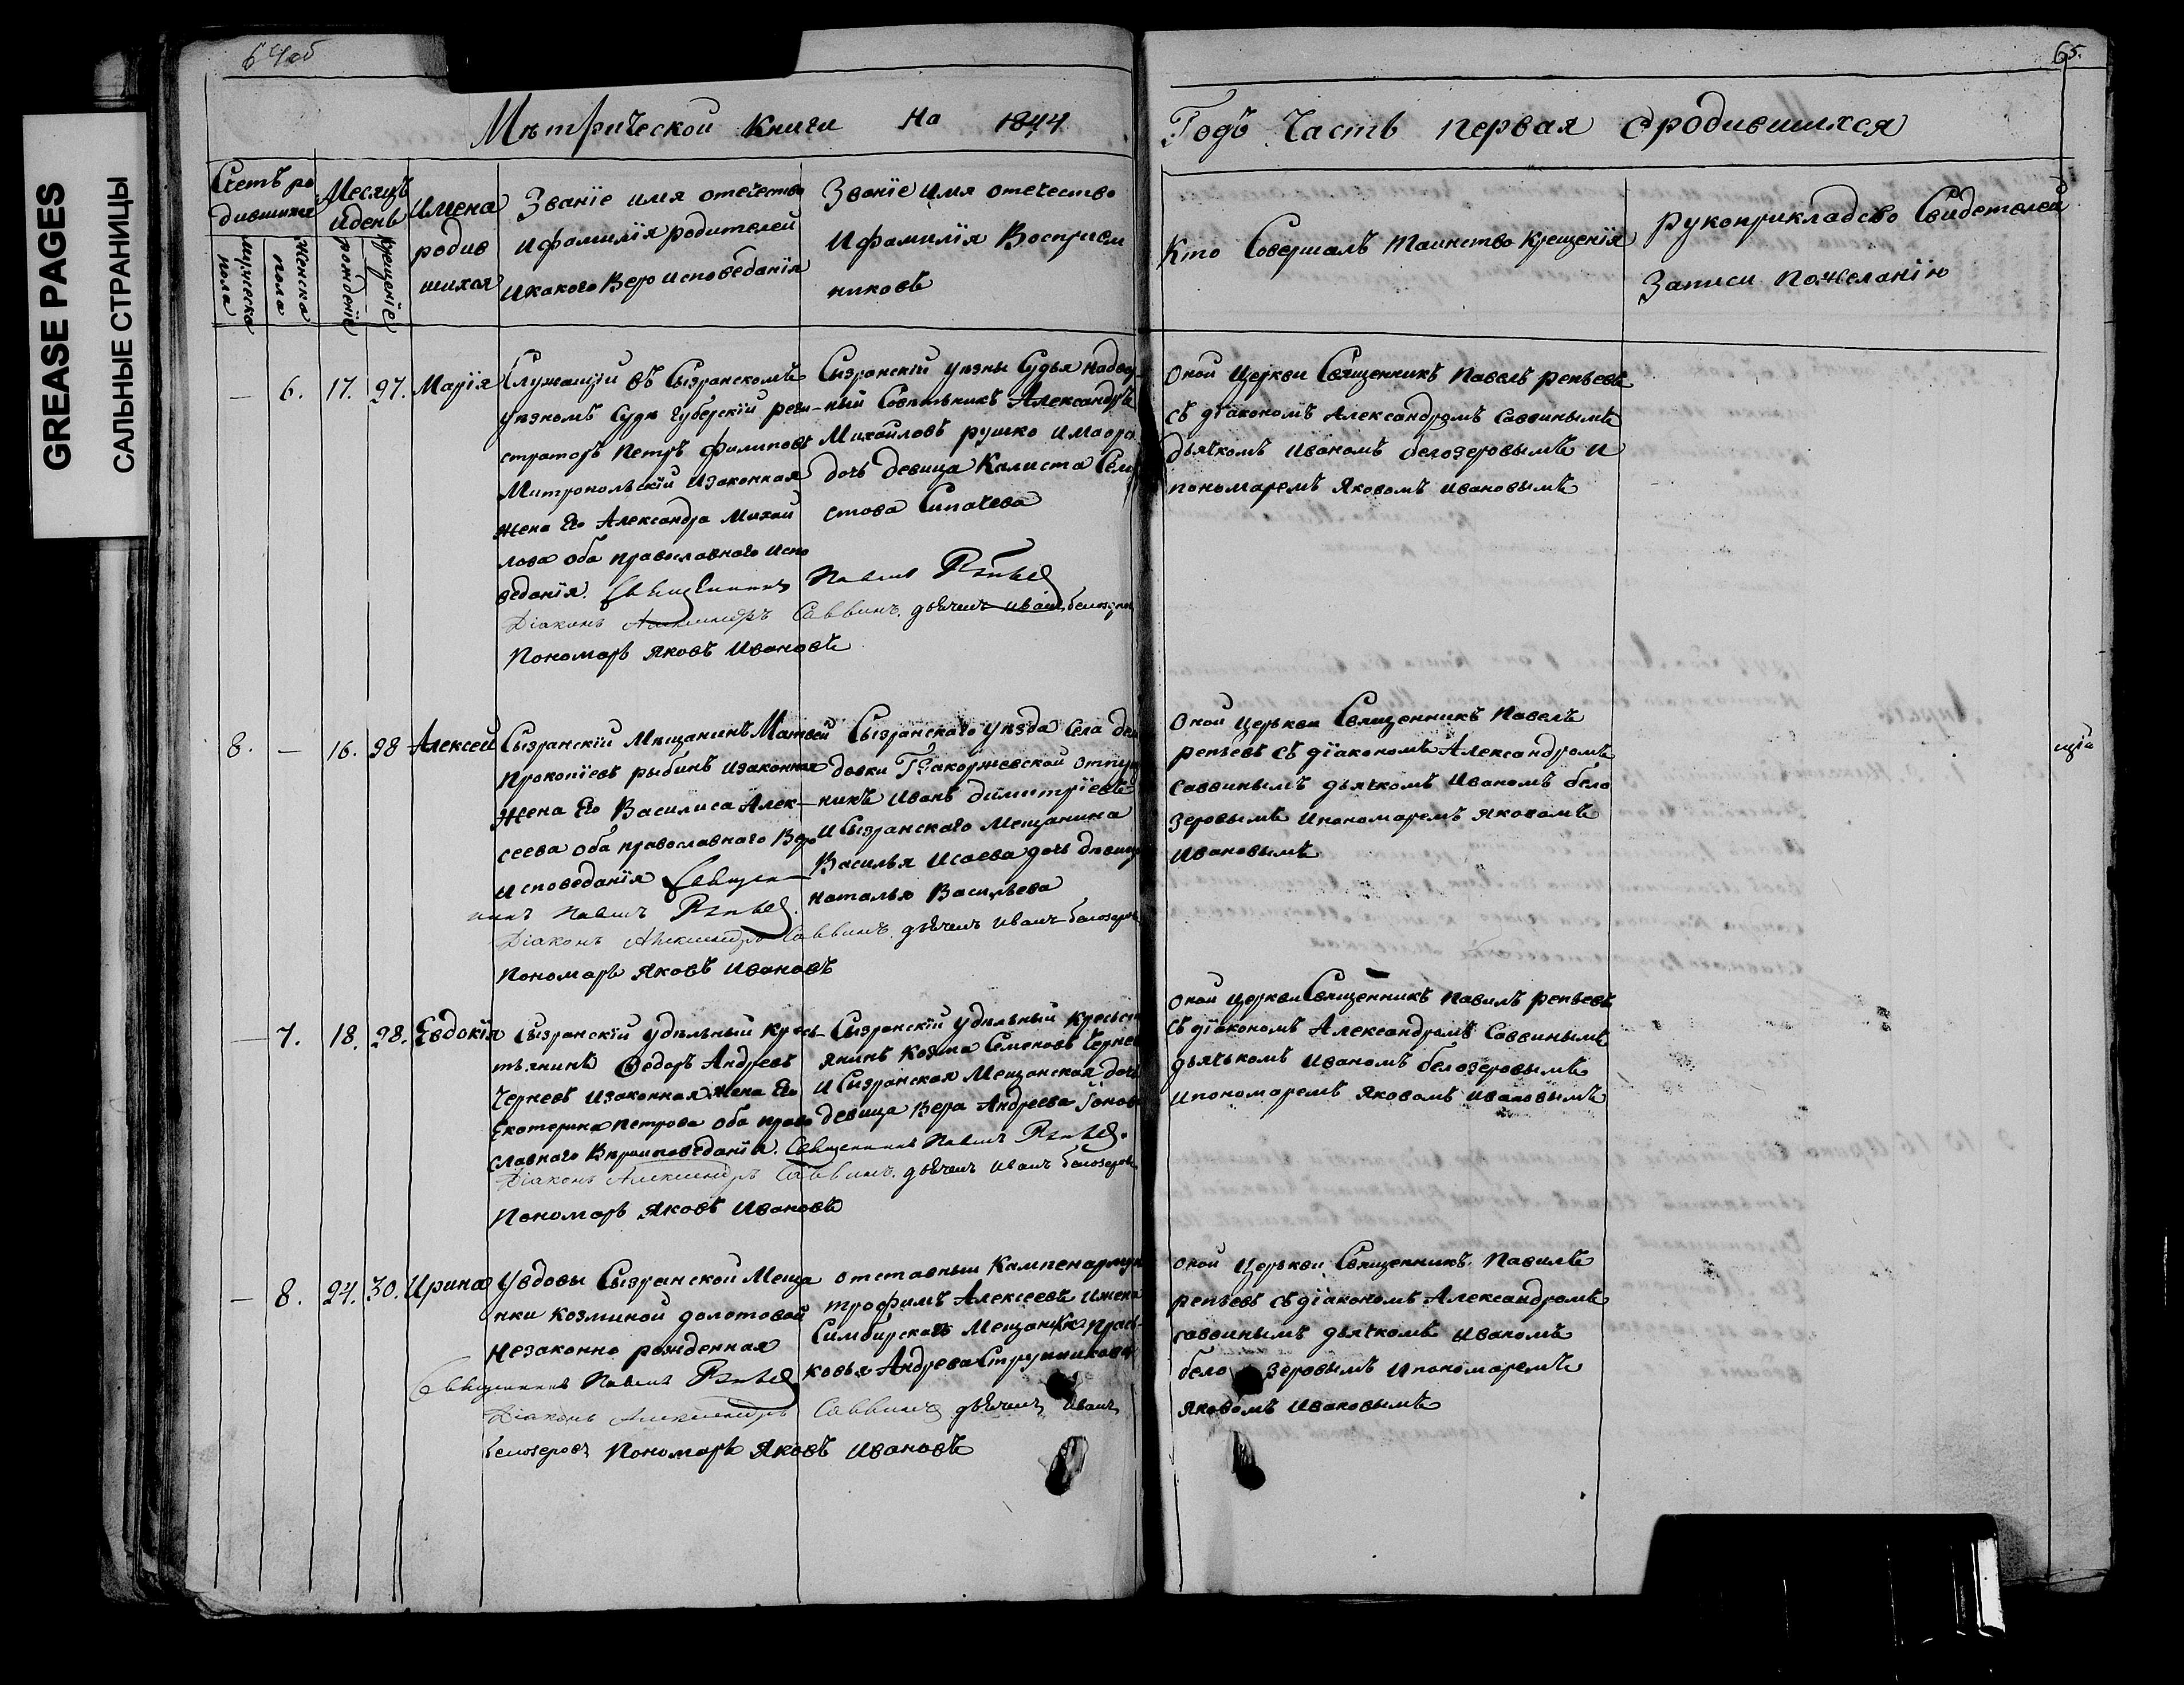 GREASE PAGES
САЛЬНЫЕ СТРАНИЦЫ
65.
Мѣтрической книги на 1844
Годъ Часть первая о родившихся
Счетъ ро
дившихся
мужеска
пола
женска
пола
Месяцъ
и день
рожденїе
крещенїе
Имена
родив
шихся
Званїе имя отечество
и фамилїя родителей
и какого Веро исповеданїя
Званїе имя отечество
и фамилїя Восприем
никовъ
Кто Совершалъ таинство крещенїя
рукоприкладсво Свидетелей
Записи по желанїю
— 6. 17. 27. Марїя
Служащїй въ Сызранскомъ
уѣзномъ Суде Губерскїй реги-
страторъ Петръ Филиповъ
Митропольскїй и законная
жена Его Александра Михаи
лова оба православного испо
веданїя. Священникъ Павелъ Репьев
Дїаконъ Александръ Саввинъ. дьячекъ Иванъ белозеров
Пономарь Яковъ Ивановъ
Сызранскїй уѣзны Судья надвор
ный Советникъ Александръ
Михайловъ рушко и
дочь девица Калиста Сели
стова Сипачева
Оной Церкви Священникъ Павелъ репьевъ
съ дїакономъ Александромъ Саввинымъ
дьячкомъ Иваномъ белозеровымъ и
пономаремъ Яковомъ Ивановымъ
8. — 16. 28 Алексей
Сызранскїй Мѣщанинъ Матвей
Прокопїевъ рыбинъ и законная
жена Его Василиса Алек-
сеева оба православного Веро
исповеданїя Священ-
никъ Павелъ Репьев.
Дїаконъ Александръ Саввинъ. дьячекъ Иванъ белозеров
Пономарь Яковъ Ивановъ
Сызранскаго уѣзда Села
довки Г. отпущ
никъ Иванъ димитрїевъ
и Сызранскаго Мещанина
Василья Исаева дочь девица
Наталья Васильева
Оной Церькви Священникъ Павелъ
репьевъ съ дїакономъ Александромъ
Саввинымъ дьячкомъ Иваномъ бело
зеровымъ и пономаремъ Яковомъ
Ивановымъ
— 7. 18. 28. Евдокїя
Сызранскїй удѣльный кресь-
тьянинъ Федоръ Андреевъ
Черневъ и законная жена Его
Екатерина Петрова оба право
славного Вѣроисповеданїя. Священникъ Павелъ Репьев.
Дїаконъ Александръ Саввинъ. дьячекъ Иванъ белозеров
Пономарь Яковъ Ивановъ
Сызранскїй удѣльный кресьть
янинъ Козма Семеновъ Чернев
и Сызранская Мещанская дочь
девица Вера Андреева
Оной Церкви Священникъ Павилъ репьевъ
съ дїакономъ Александромъ Саввинымъ
дьячькомъ Иваномъ белозеровымъ
и пономаремъ Яковомъ Ивановымъ
— 8. 24. 30. Ирина
У вдовы Сызранской Меща
нки Козминой долотовой
незаконно рожденная
Священникъ Павелъ Репьев
Дїаконъ Александръ Саввинъ дьячекъ Иванъ
белозеровъ Пономарь Яковъ Ивановъ
отставный Кампенармус
трофимъ Алексеевъ и жена
Симбирскаго Мещанина Прас-
ковья Андреева Струнникова
Оной Церькви Священникъ Павилъ
репьевъ съ дїакономъ Александромъ
саввинымъ дьячкомъ Иваномъ
бело зеровымъ и пономаремъ
Яковомъ Ивановымъ